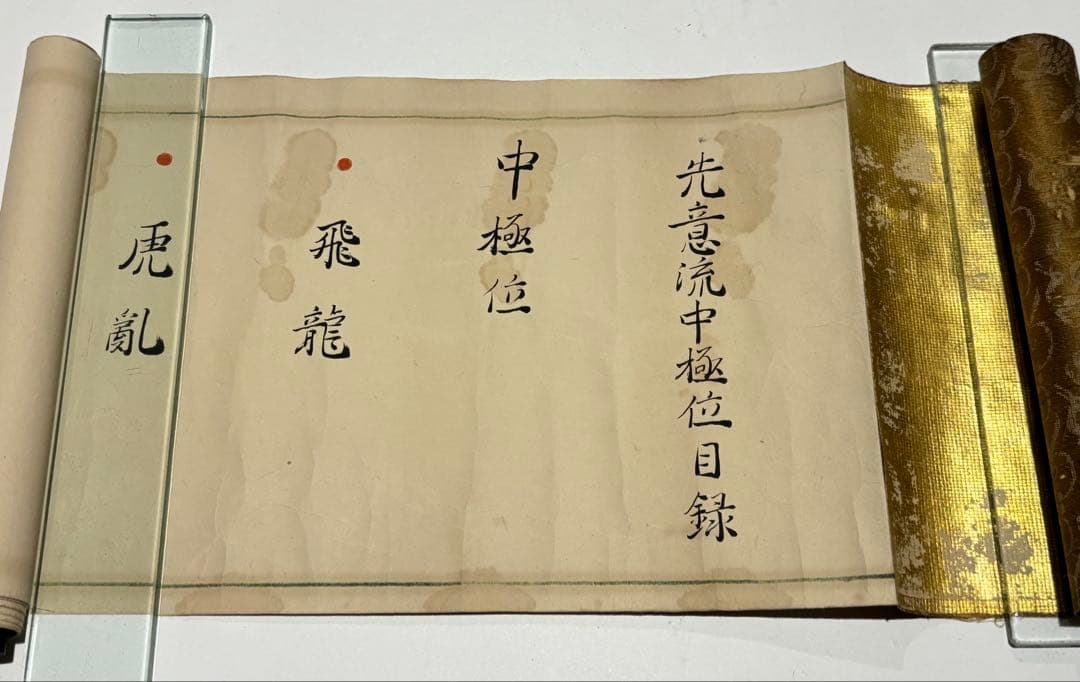 先意流中極位目録
中極位
飛龍
虎亂